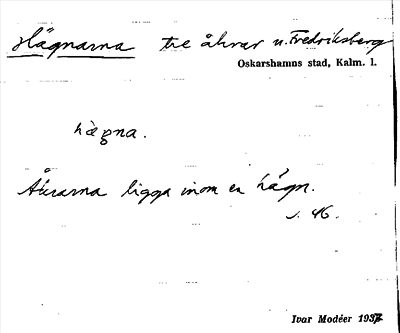 Hägnarna tre åkrar u. Fredriksberg
Oskarshamns stad, Kalm. l.
hägna.
Åkrarna ligga inom en hägn.
s. 46.
Ivar Modéer 1937